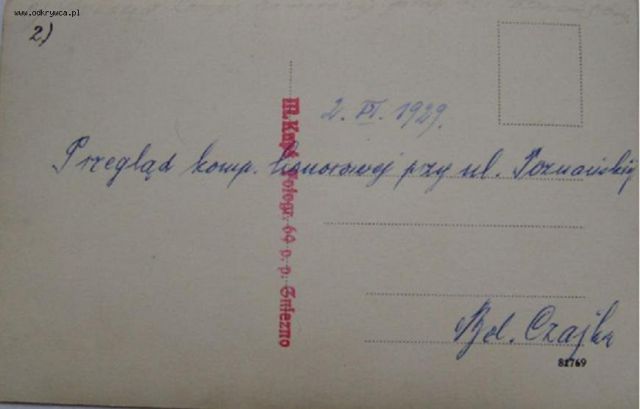 www.odkrywca.pl
2)
2. VI. 1929.
Przegląd komp. honorowej przy ul. Poznańskiej
Fotogr. 69 p. p. Gniezno
Bol. Czajka
82769